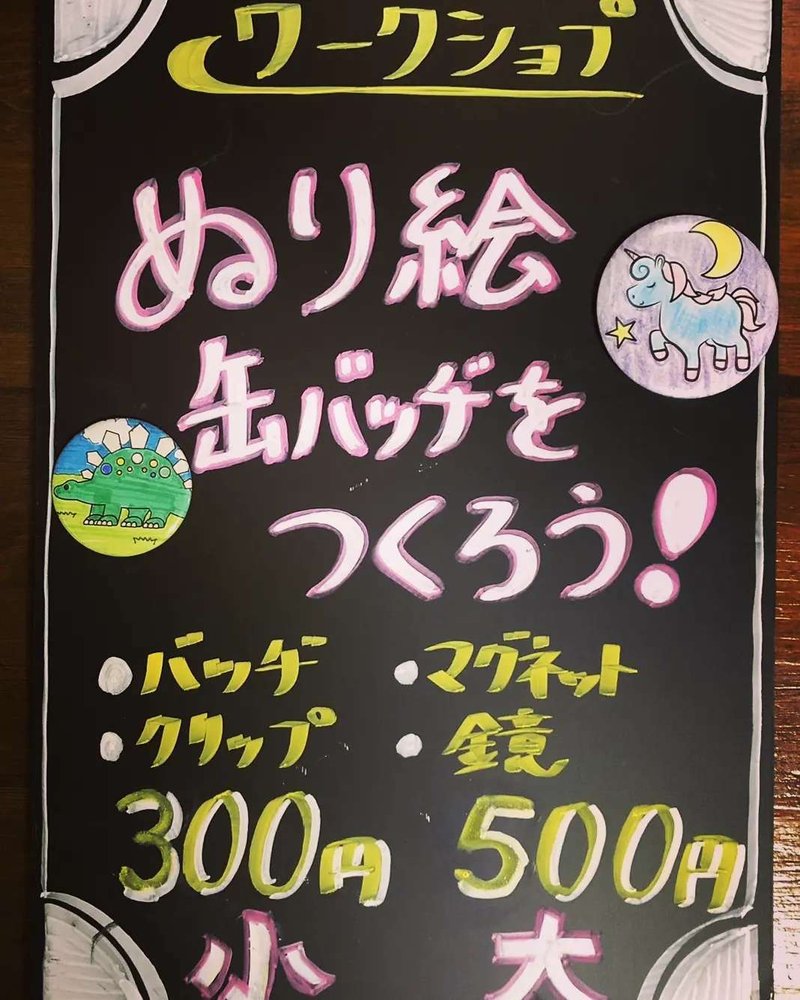 ワークショプ
ぬり絵
缶バッヂを
つくろう!
・バッヂ ・マグネット
・クリップ ・鏡
300円 500円
小 大